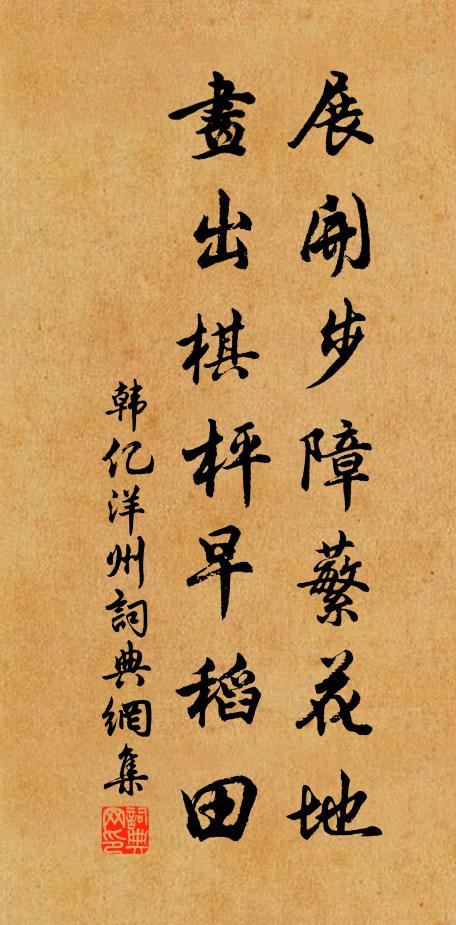 展開步障蘩花地
畫出棋枰早稻田
韩亿洋州詞典網集
詞典网印